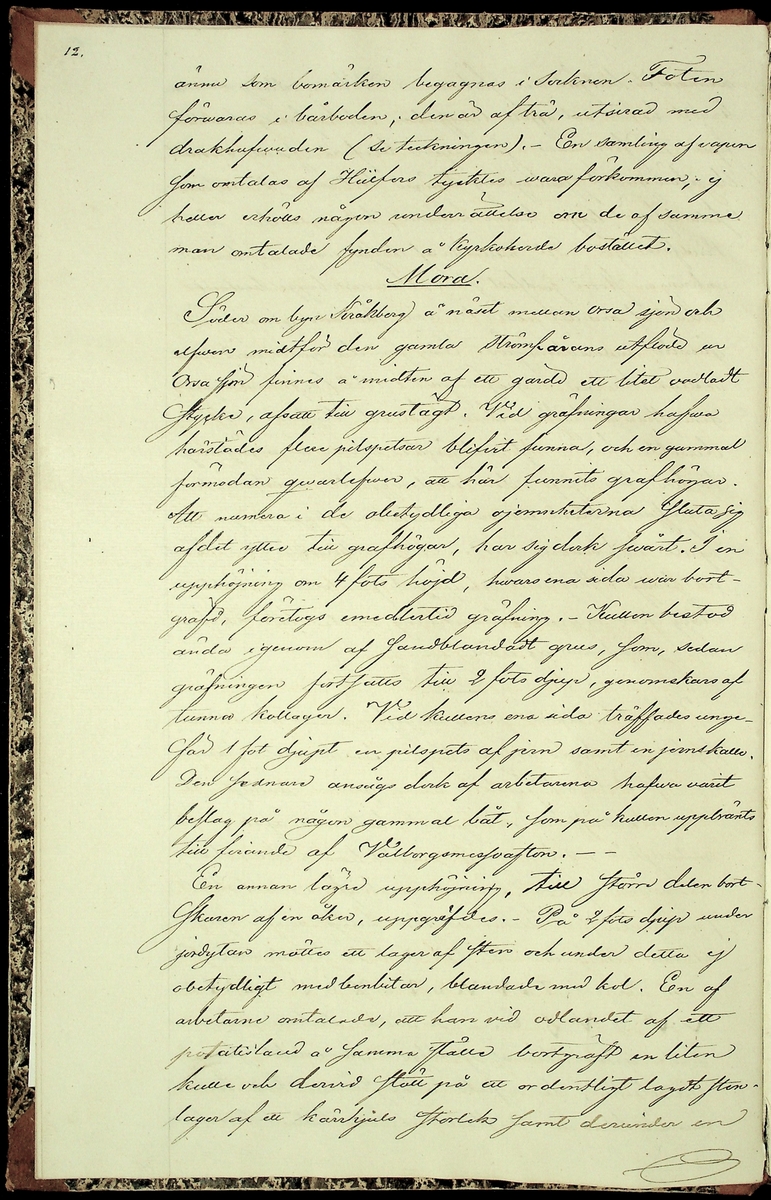 12.
ännu som bomärken begagnas i socknen. Foten
förwaras i bårboden; den är af trä, utsirad med
drakhufwuden (se teckningen). – En samling af vapen
som omtalas af Hülfers tycktes wara förkommen; ej
heller erhölls någon underrättelse om de af samme
man omtalade fynden å Kyrkoherde bostället.
Mora.
Söder om byn Kråkberg å näset mellan Orsa sjön och
elfwen midtför den gamla strömfårans utflöde ur
Orsa sjön finnes å midten af ett gärde ett litet oodladt
stycke, afsatt till grustägt. Vid gräfningar hafwa
härstädes flere pilspetsar blifvit funna, och en gammal
förmodan qwarlefwer, att här funnits grafhögar.
Att numera i de obetydliga ojemnheterna sluta sig
af det yttre till grafhögar, har sig dock swårt. I en
upphöjning om 4 fots höjd, hwars ena sida war bort-
gräfd, företogs emedlertid gräfning. – Kullen bestod
ända igenom af sandblandadt grus, som, sedan
gräfningen fortsatts till 2 fots djup, genomskars af
tunna kollager. Vid kullens ena sida träffades unge-
fär 1 fot djupt en pilspets af jern samt en jernskalla.
Den sednare ansågs dock af arbetarna hafwa varit
beslag på någon gammal båt, som på kullen uppbränts
till firande af Valborgsmessoafton. – –
En annan lägre upphöjning, till större delen bort-
skuren af en åker, uppgräfdes. – På 2 fots djup under
jordytan möttes ett lager af sten och under detta ej
obetydligt med benbitar, blandade med kol. En af
arbetarne omtalade, att han vid odlandet af ett
potatisland å samma ställe bortgräft en liten
kulle och dervid stött på ett ordentligt lagdt sten-
lager af ett kärrhjuls storlek samt derunder en